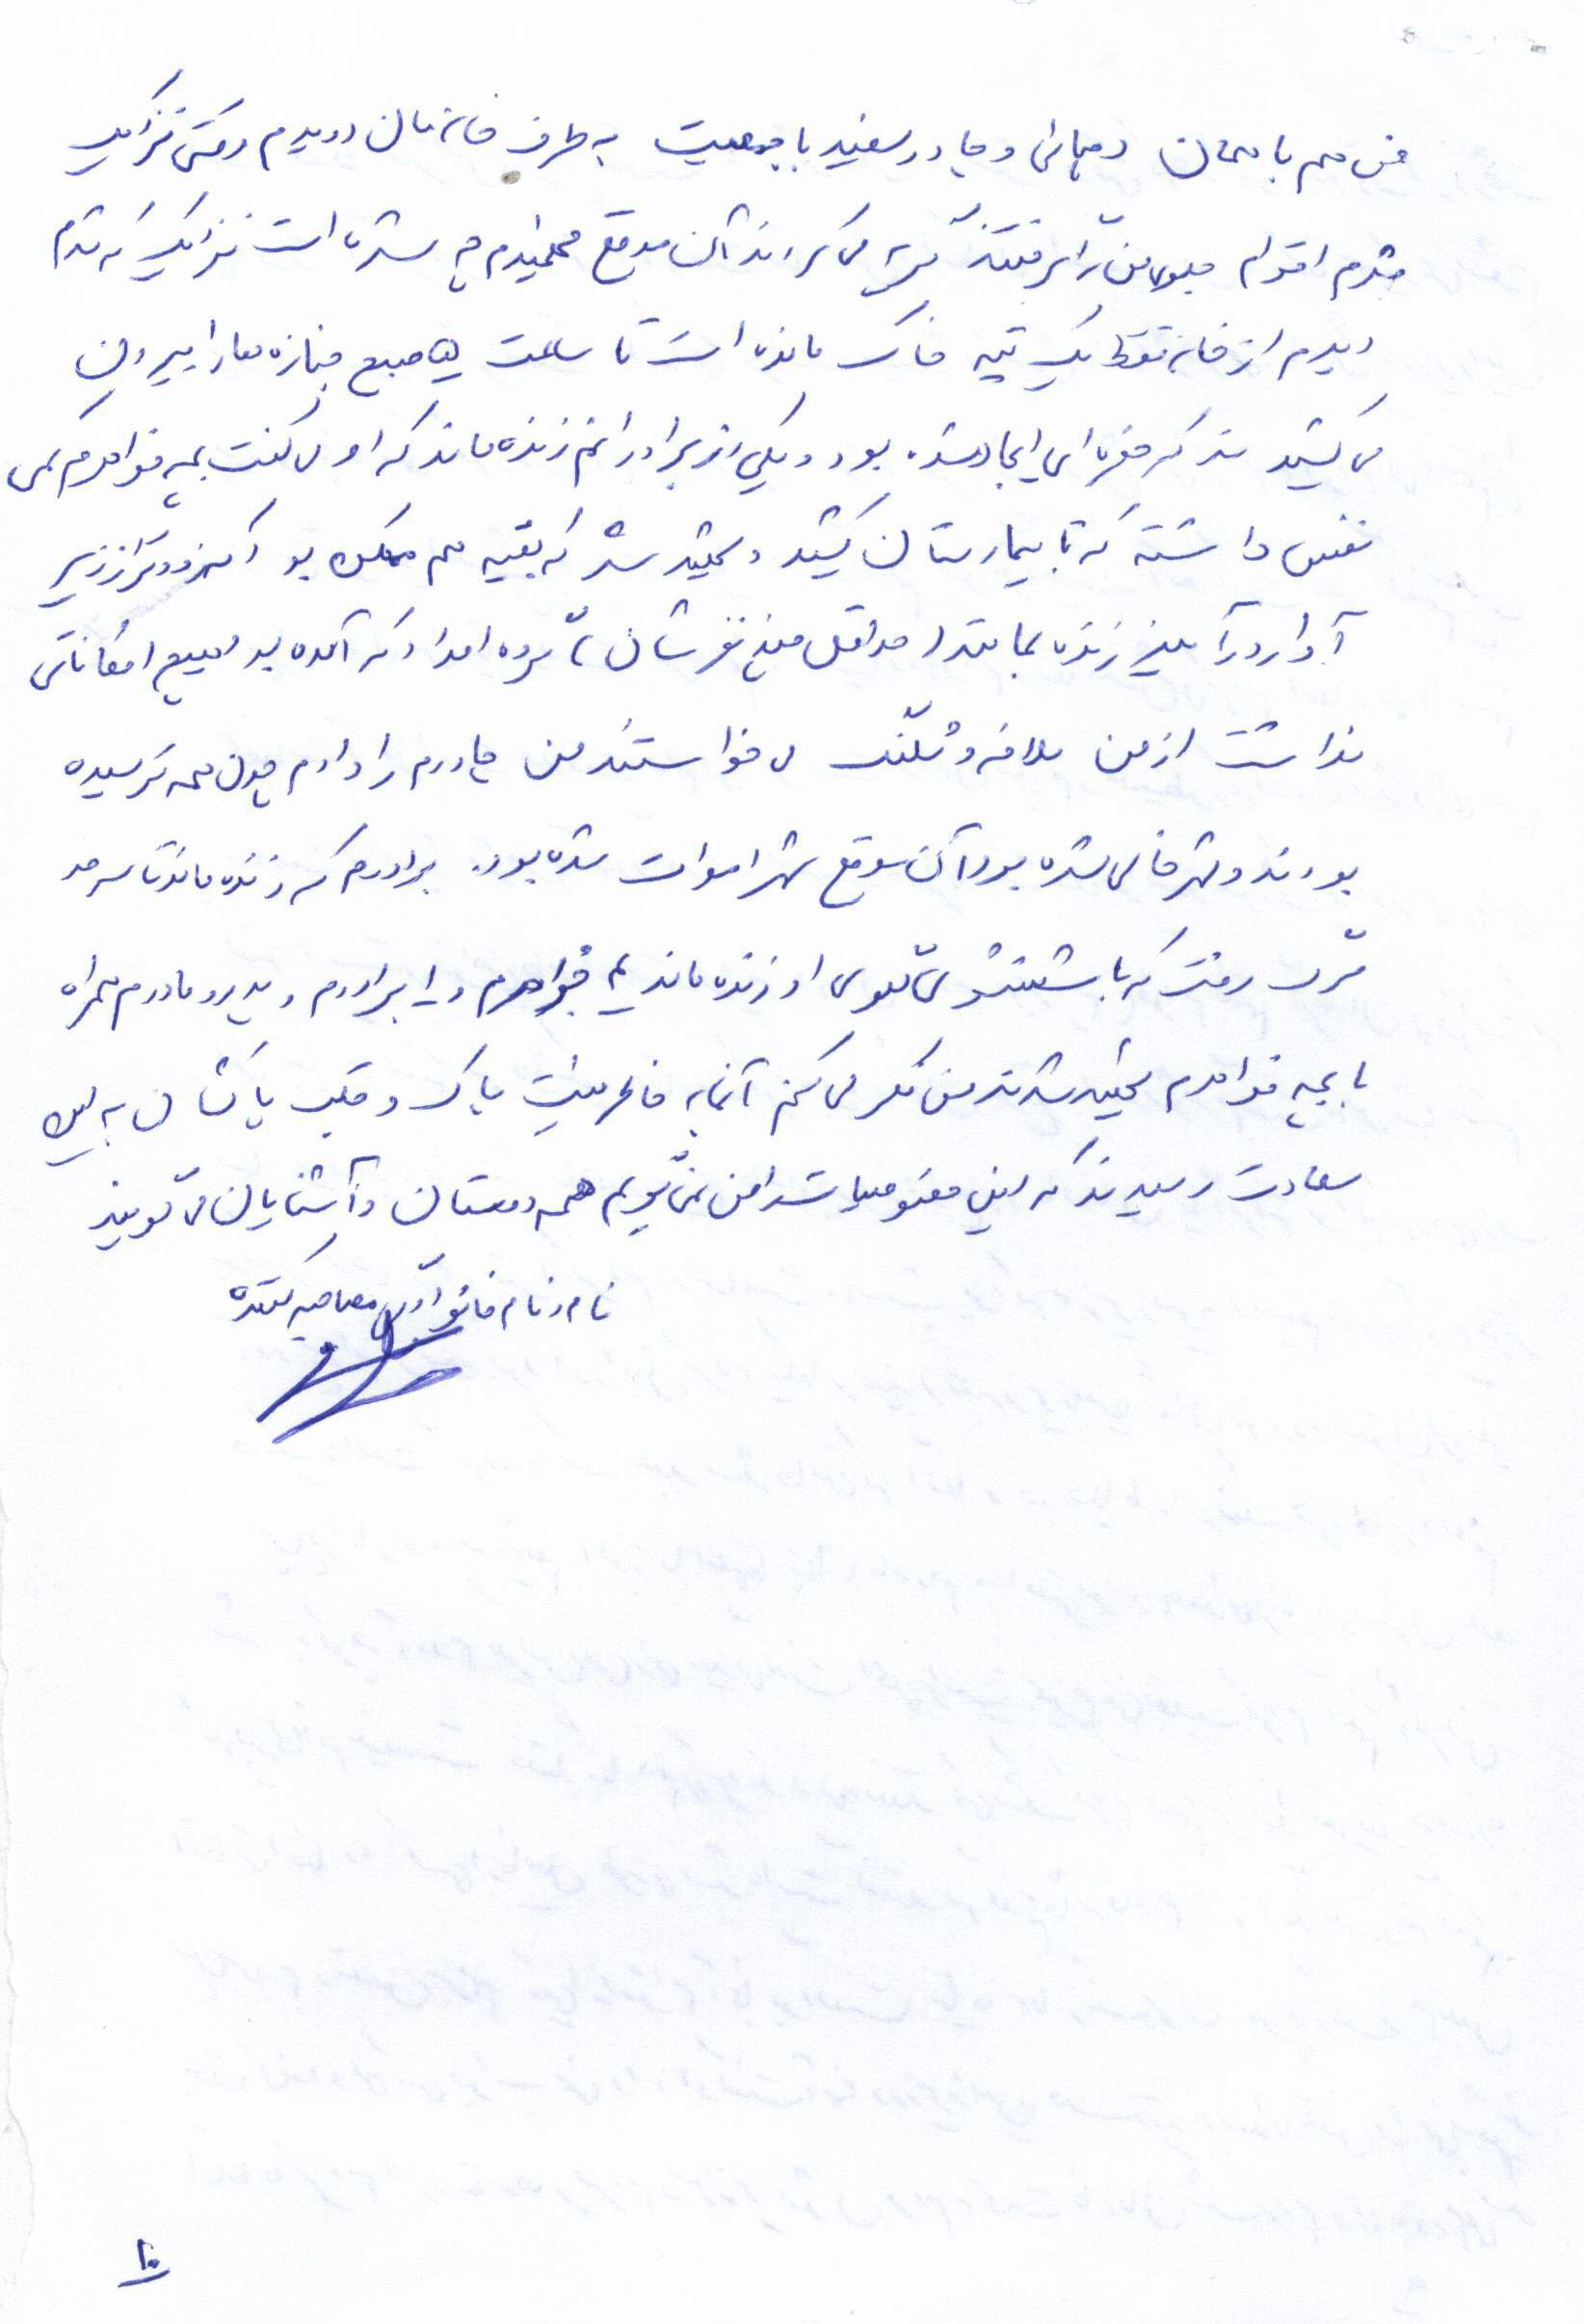 من هم با همان دمپائی و چادر سفید با جمعیت به طرف خانه مان دویدم وقتی نزدیک
شدم اقوام جلوی من را گرفتند گریه می کردند آن موقع فهمیدم چه شده است نزدیک که شدم
دیدم از خانه فقط یک تپه خاک مانده است تا ساعت ۵ صبح جنازه ها را بیرون
می کشیدند که حفره ای ایجاد شده بود و یکی از برادرانم زنده ماند که او می گفت بچه خواهرم کمی
نفس داشته که تا بیمارستان کشید و شهید شد که بقیه هم ممکن بود اگر زودتر از زیر
آوار در آیند زنده بمانند حداقل پنج نفرشان گروه امداد که آمده بود هیچ امکاناتی
نداشت از من ملافه و شلنگ می خواستند من چادرم را دادم چون همه ترسیده
بودند و شهر خالی شده بود آن موقع شهر اموات شده بود. برادرم که زنده ماند تا سر حد
مرگ رفت که با شستشوی گلوی او زنده ماند خواهرم و برادرم و پدر و مادرم همراه
با بچه خواهرم شهید شدند من فکر می کنم آنها به خاطر نیت پاک و قلب پاکشان به این
سعادت رسیدند که این خصوصیات را من نمی گویم همه دوستان و آشنایان می گویند
نام و نام خانوادگی مصاحبه کننده
۱۰